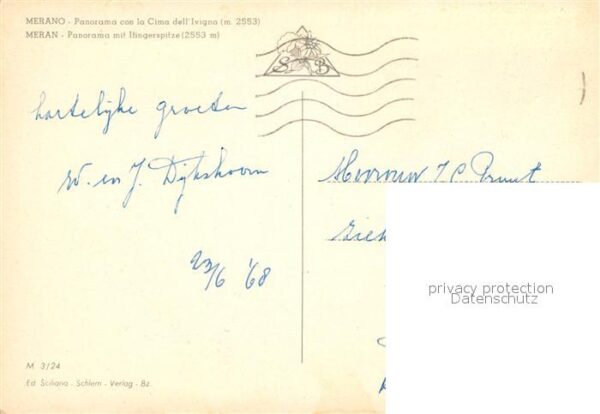 MERANO - Panorama con la Cima dell'Ivigna (m. 2553)
MERAN - Panorama mit Ifingerspitze (2553 m)
S B
hartelijke groeten
W. en J. Dijkshoorn
23/6 '68
Mevrouw J C
Ziek
privacy protection
Datenschutz
M 3/24
Ed Siciliano - Schlern - Verlag - Bz.